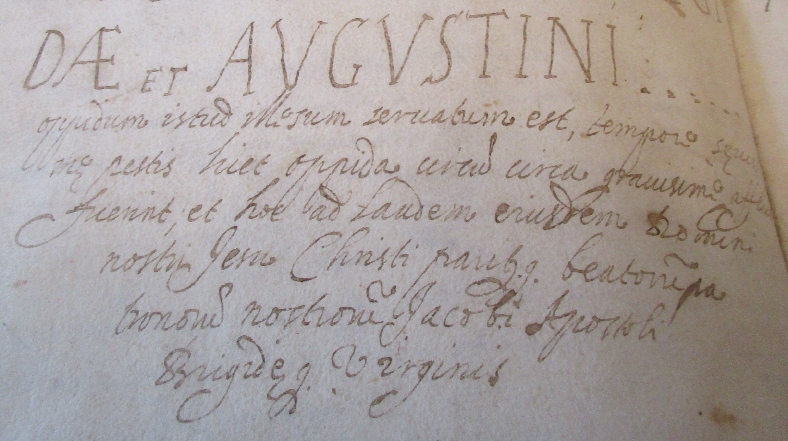 DÆ ET AUGVSTINI.......
oppidum istud illesum seruatum est, tempore
pestis licet oppida circū circa grauissime
fuerint, et hoc ad Laudem eiusdem Domini
nostri Jesu Christi beatorū pa
tronorū nostrorū Jacobi Apostoli
Brigideq. Virginis